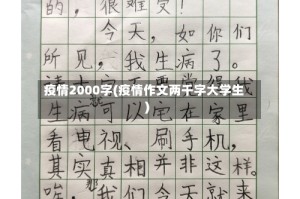 的，很难受！
今天，如你们
所见，我生病了，
疫情2000字(疫情作文两千字大学生
)
生病可以宅在家里
看电视、刷手机，
其实真相并非这样。
唉，我今天就来